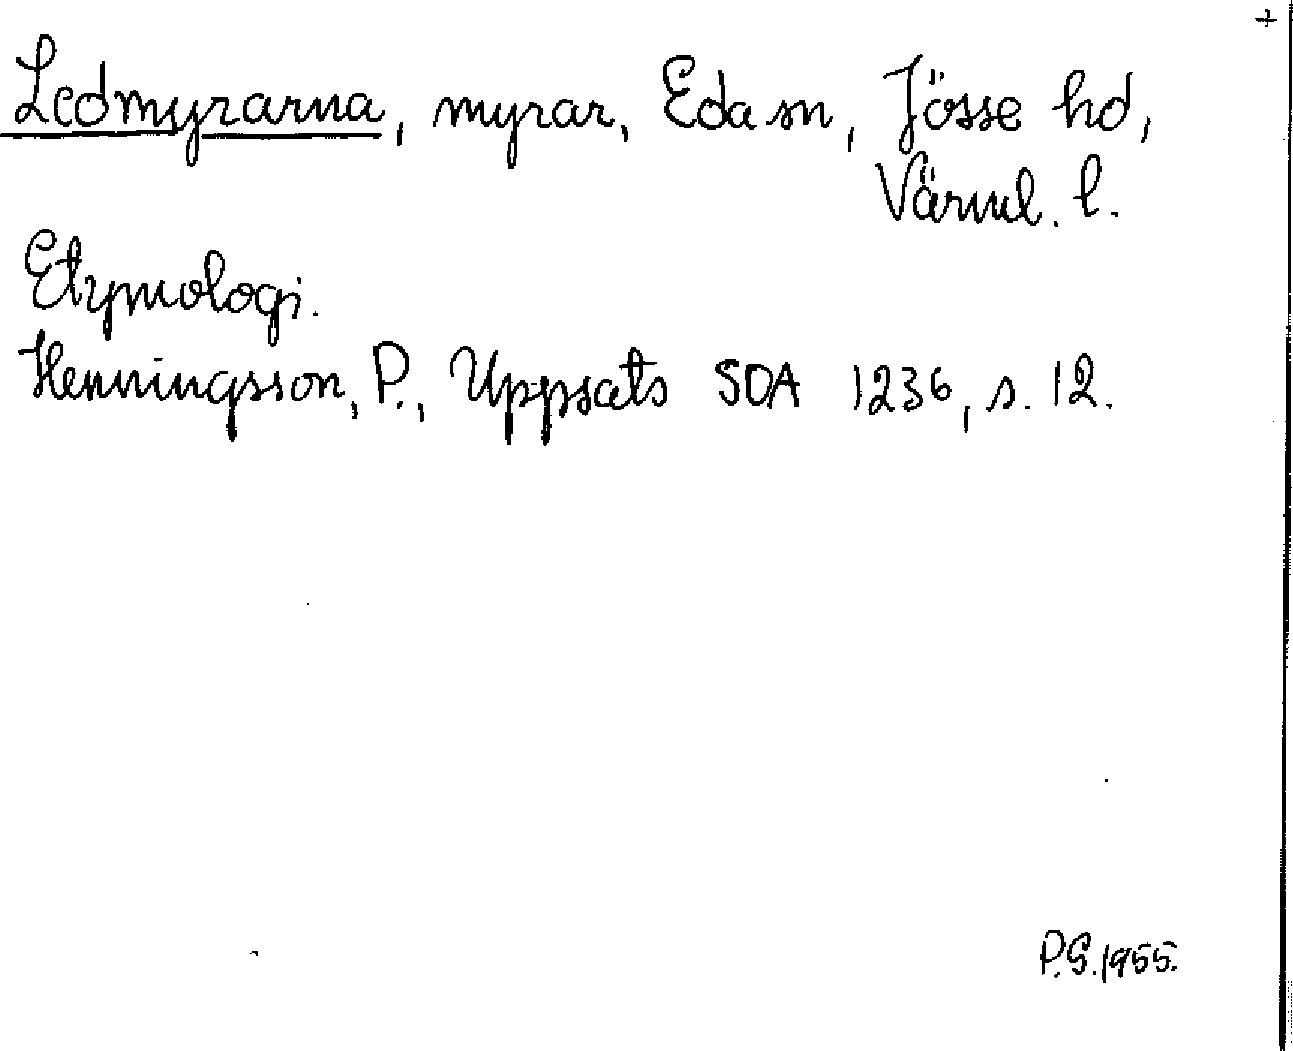 +
Ledmyrarna, myrar, Eda sn, Jösse hd,
Värml. l.
Etymologi.
Henningsson, P., Uppsats SOA 1236, s. 12.
P.G. 1955.